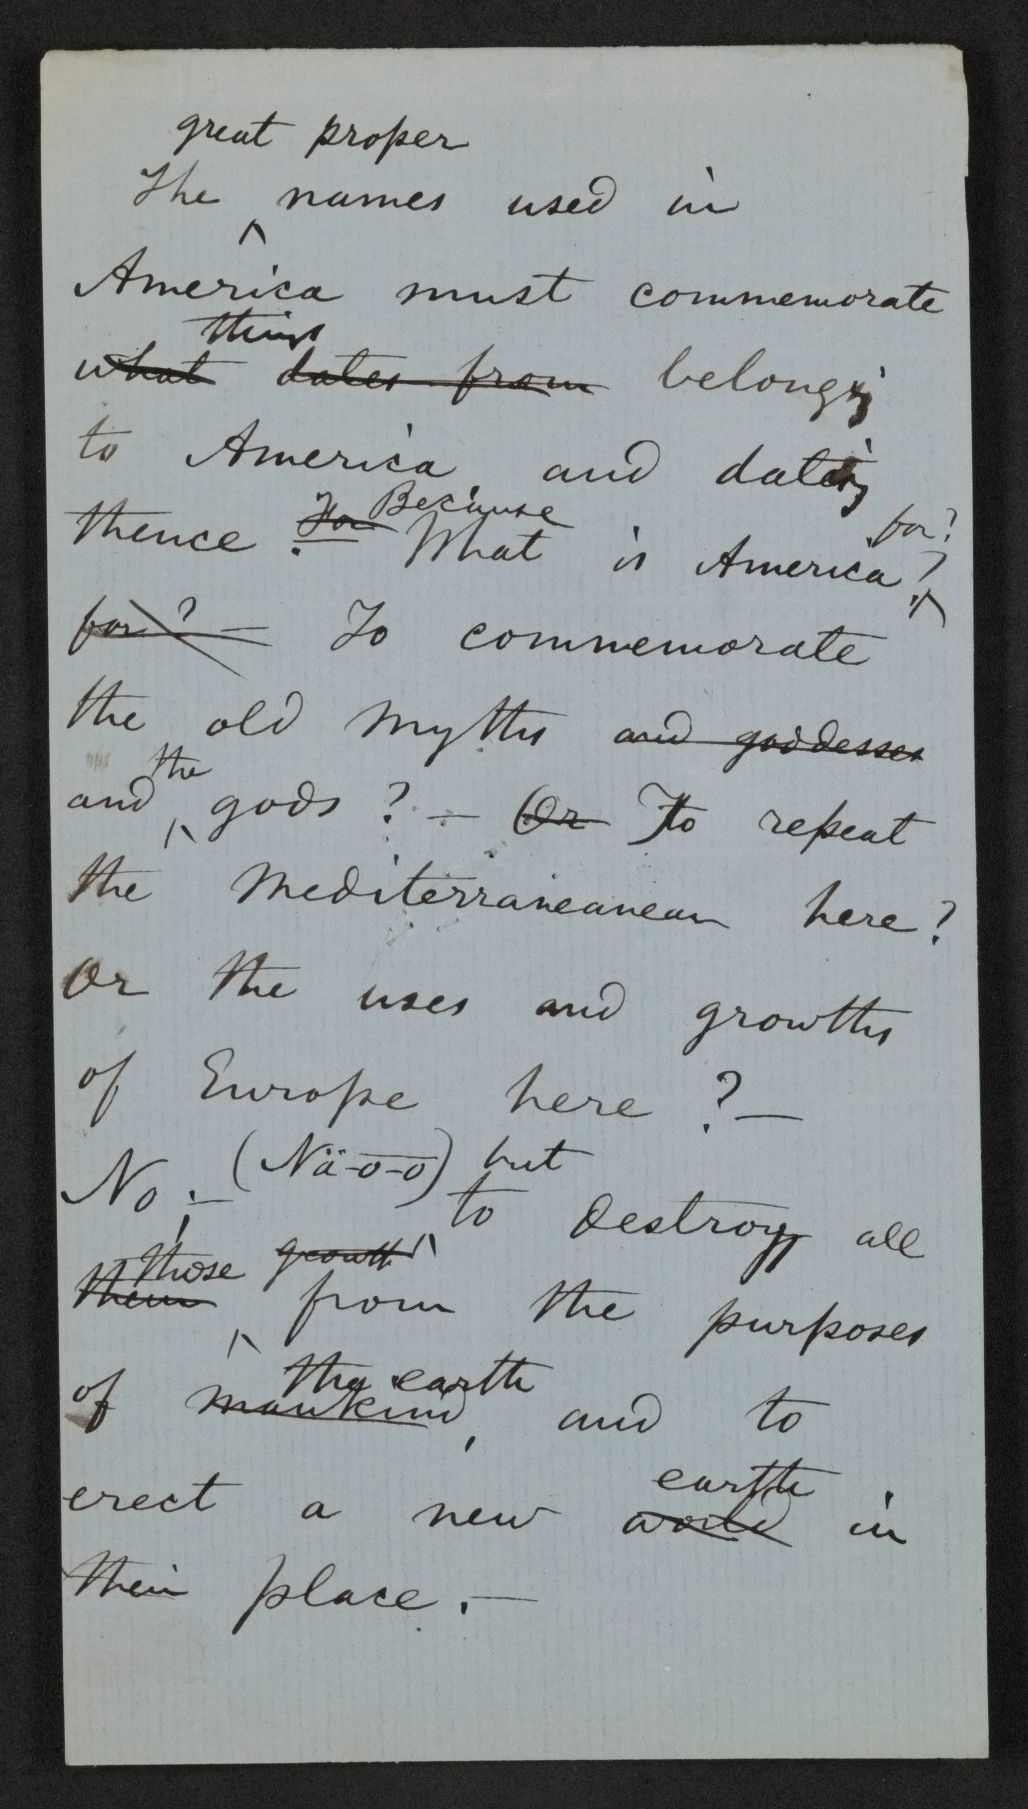 great proper
The ^ names used in
America must commemorate
things
what dates from belonging
to America and dating
thence. For Because What is America for?
for? — To commemorate
the old myths and goddesses
the
and ^ gods? — Or To repeat
the Mediterraneanean here?
Or the uses and growths
of Europe here? —
No; — (Nä-o-o) but
to destroy all
those growth
them ^ from the purposes
the earth
of mankind, and to
earth
erect a new world in
their place. —